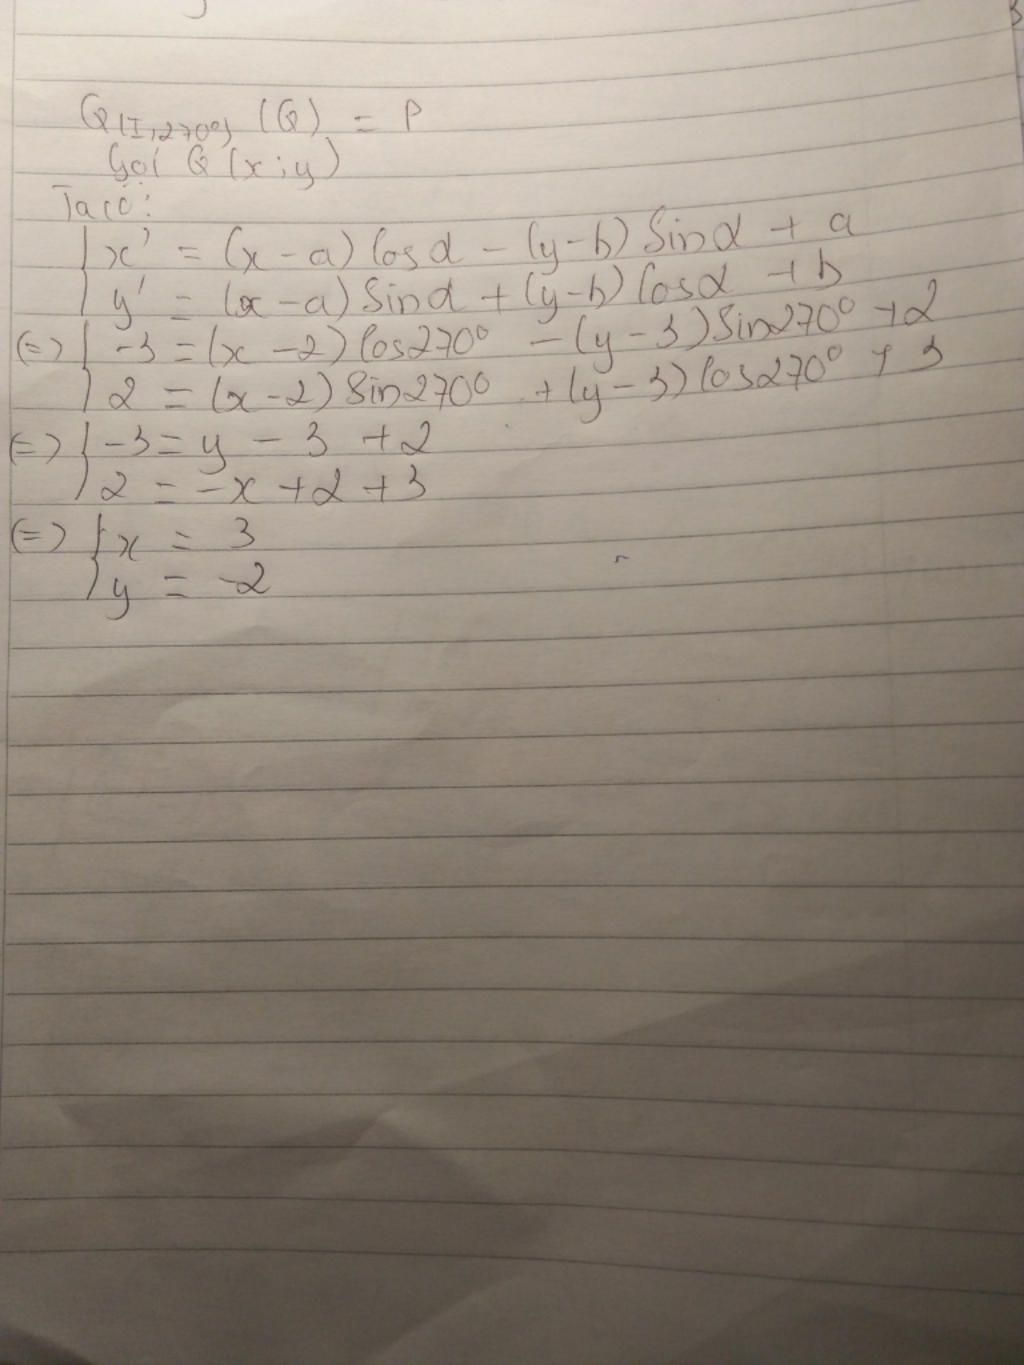 Q(I,270°) (Q) = P
Gọi Q (x;y)
Ta có:
{ x' = (x-a) cosα - (y-b) Sinα + a
y' = (x-a) Sinα + (y-b) cosα + b
(=) { -3 = (x-2) cos270° - (y-3) Sin270° +2
2 = (x-2) Sin270° + (y-3) cos270° + 3
(=) { -3 = y - 3 + 2
2 = -x + 2 + 3
(=) { x = 3
y = -2